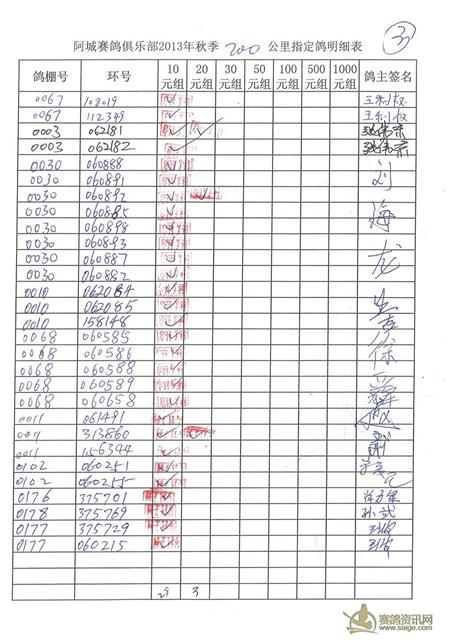 ③
阿城赛鸽俱乐部2013年秋季 200 公里指定鸽明细表
鸽棚号 环号 10元组 20元组 30元组 50元组 100元组 500元组 1000元组 鸽主签名
0067 108019 ✓
0067 112349 ✓
0003 062181 ✓ ✓
0003 062182 ✓
0030 060888 ✓ 刘
0030 060891 ✓
0030 060892 ✓ ✓
0030 060885 ✓ 海
0030 060898 ✓
0030 060893 ✓
0030 060887 ✓ 龙
0030 060882 ✓
0010 062084 ✓
0010 062085 ✓
0010 158148 ✓
0068 060585 ✓
0068 060586 ✓
0068 060588 ✓
0068 060589 ✓
0068 060658 ✓
0011 061491 ✓
313860 ✓ ✓
0011 156344 ✓
0102 060251 ✓
0102 060255 ✓
0176 375701 ✓
0178 375769 ✓
0177 375729 ✓
0177 060215 ✓
29 3
赛鸽资讯网
www.saige.com